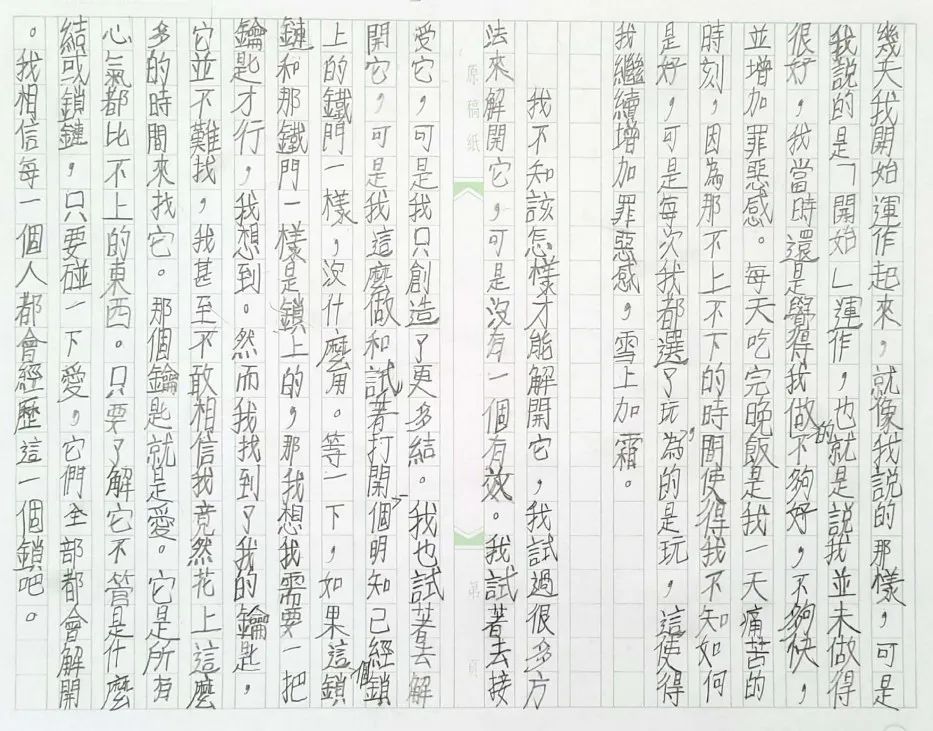 幾天我開始運作起來，就像我說的那樣，可是
我說的是「開始」運作，也就是說我並未做得
很好，我當時還是覺得我做的不夠好，不夠快，
並增加罪惡感。每天吃完晚飯是我一天痛苦的
時刻，因為那不上不下的時間使得我不知如何
是好，可是每次我都選了玩，為的是玩，這使得
我繼續增加罪惡感，雪上加霜。
我不知該怎樣才能解開它，我試過很多方
法來解開它，可是沒有一個有效。我試著去接
原稿紙
第 頁
受它，可是我只創造了更多結。我也試著去解
開它，可是我這麼做和試著打開一個明知已經鎖
上的鐵門一樣，沒什麼用。等一下，如果這個鎖
鏈和那鐵門一樣是鎖上的，那我想我需要一把
鑰匙才行，我想到。然而我找到了我的鑰匙，
它並不難找，我甚至不敢相信我竟然花上這麼
多的時間來找它。那個鑰匙就是愛。它是所有
心氣都比不上的東西。只要了解它不管是什麼
結或鎖鏈，只要碰一下愛，它們全部都會解開
。我相信每一個人都會經歷這一個鎖吧。